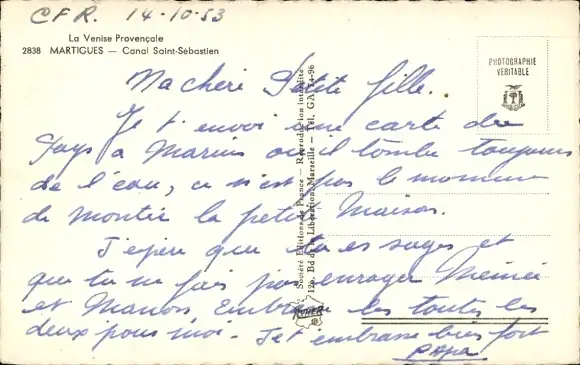 C.F.R. 14-10-53
La Venise Provençale
2838 MARTIGUES — Canal Saint-Sébastien
PHOTOGRAPHIE
VÉRITABLE
Ma chère Petite fille.
Je t'envoi une carte du
Pays a Marius ou il tombe toujours
de l'eau, ce n'est pas le moment
de montir la petite Maison.
J'espère que tu es sages et
que tu ne fais pas enrager Mémée
et Manon. Embrasse les toutes les
deux pour moi. Je t'embrasse bien fort
Papa
Société Editions de France — Reproduction interdite
126, Bd de la Libération, Marseille — Tél. GA. 74-96